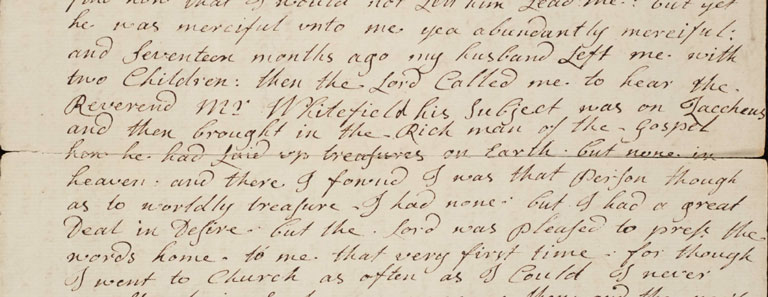 now that I would not Let him Lead me: but yet
he was merciful vnto me yea abundantly merciful:
and Seventeen months ago my husband Left me with
two Children: then the Lord Called me to hear the
Reverend Mr Whitefield his Subject was on Zaccheus
and then brought in the Rich man of the Gospel
how he had Laid vp treasures on Earth but none in
heaven: and there I fownd I was that Person though
as to worldly treasure I had none: but I had a great
Deal in Desire but the Lord was pleased to press the
words home to me that very first time for though
I went to Church as often as I Could I never